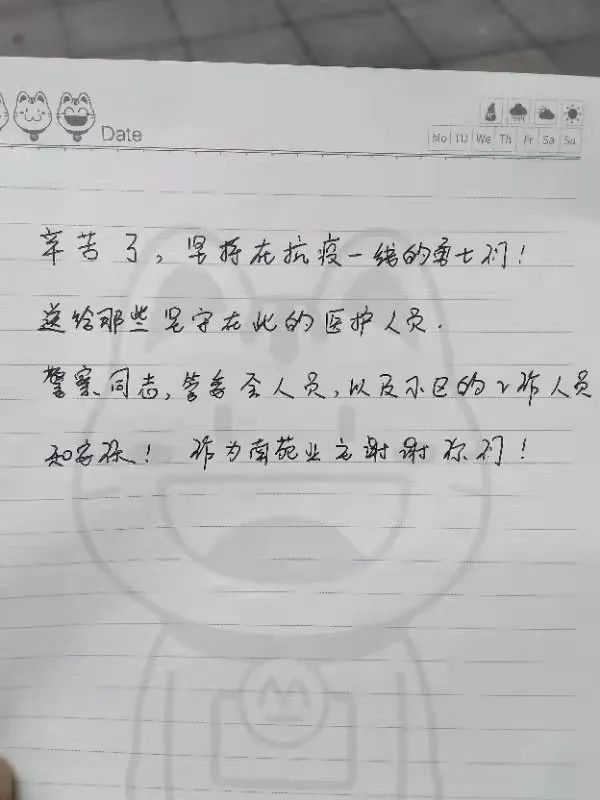 Date
Mo TU We Th Fr Sa Su
辛苦了，坚持在抗疫一线的勇士们！
送给那些坚守在此的医护人员.
警察同志,管委会人员,以及小区的工作人员
和安保！ 作为南苑业主谢谢你们！